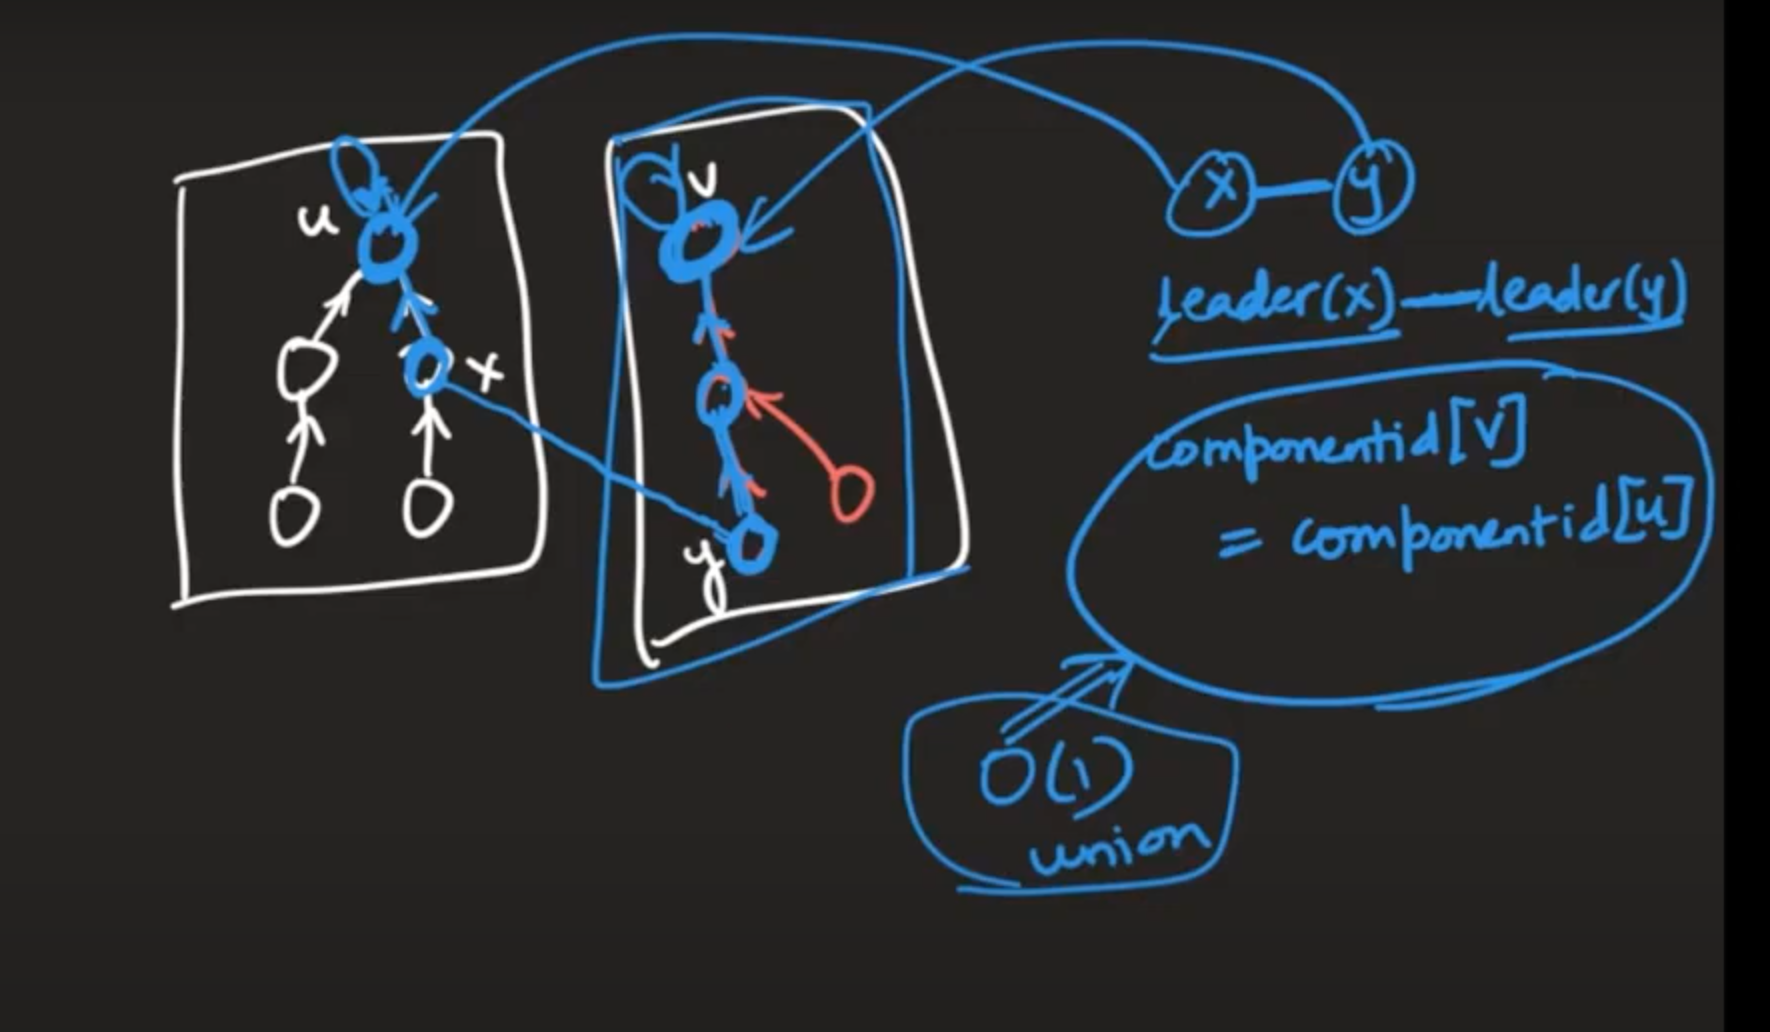 u
v
x
y
x y
leader(x) — leader(y)
componentid[v]
= componentid[u]
O(1)
union